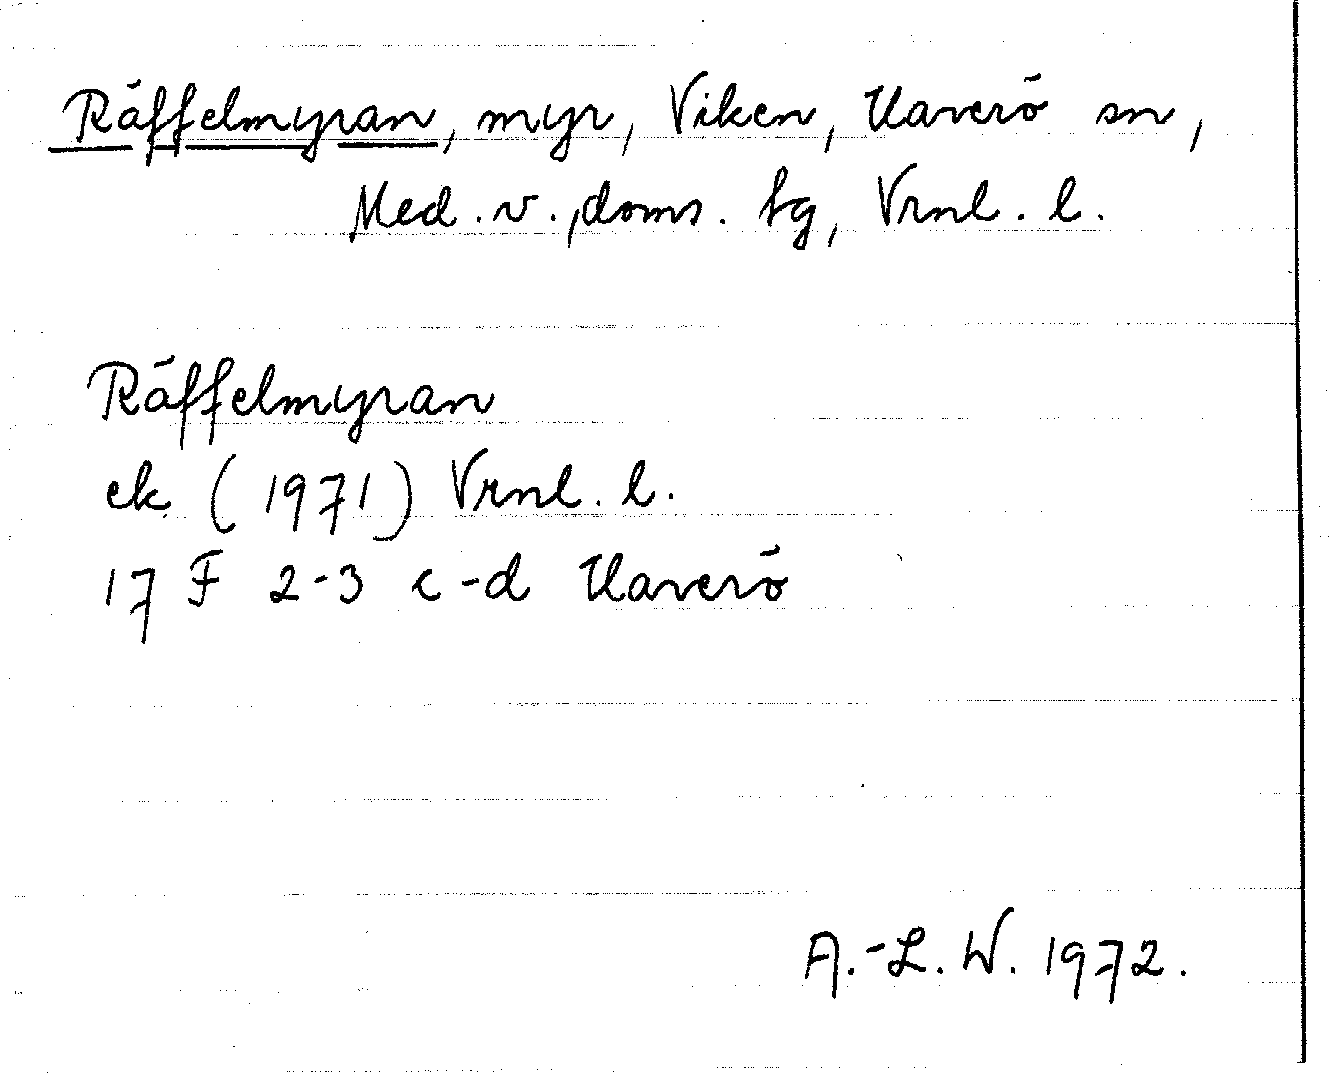 Räffelmyran, myr, Viken, Haverö sn,
Med. v. doms. tg, Vrnl. l.
Räffelmyran
ek (1971) Vrnl. l.
17 F 2-3 c-d Haverö
A.-L. W. 1972.